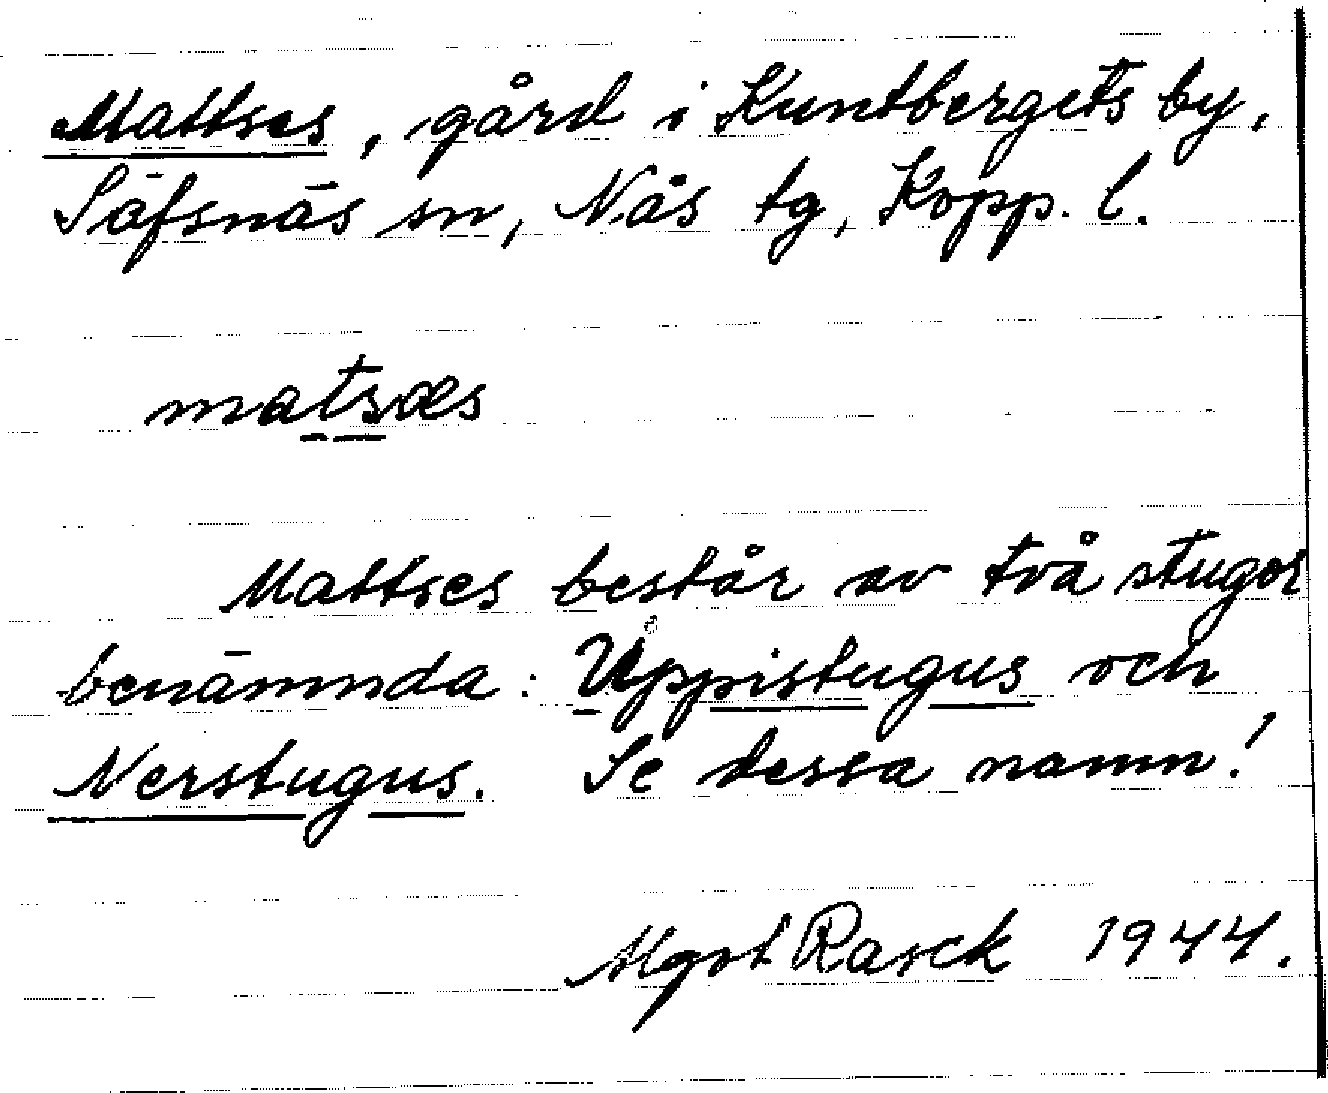 Mattses, gård i Kuntbergets by,
Säfsnäs sn, Nås tg, Kopp. l.
matsæs
Mattses består av två stugor
benämnda: Uppistugus och
Nerstugus. Se dessa namn!
Mgot Rasck 1944.